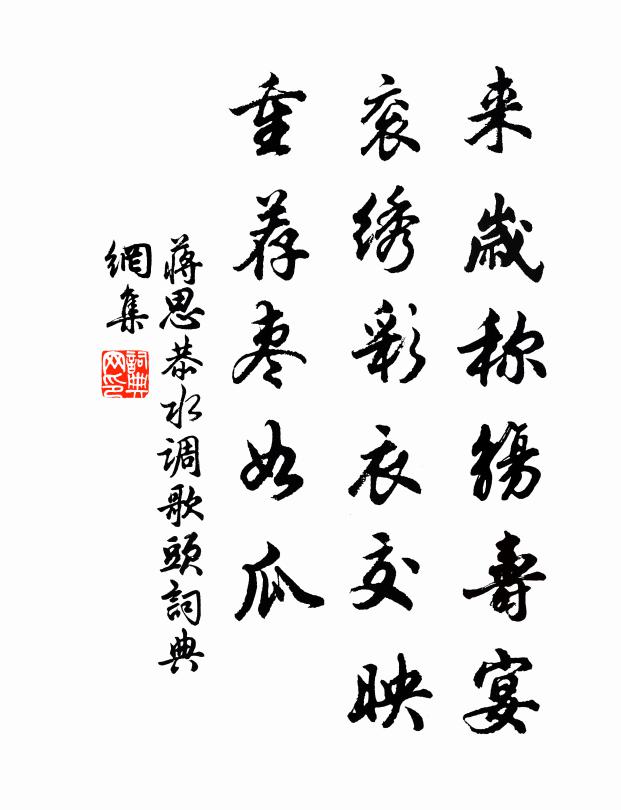 来歲称觴壽宴
衮绣彩衣交映
重荐枣如瓜
蔣思恭水调歌頭詞典
網集
詞典網印